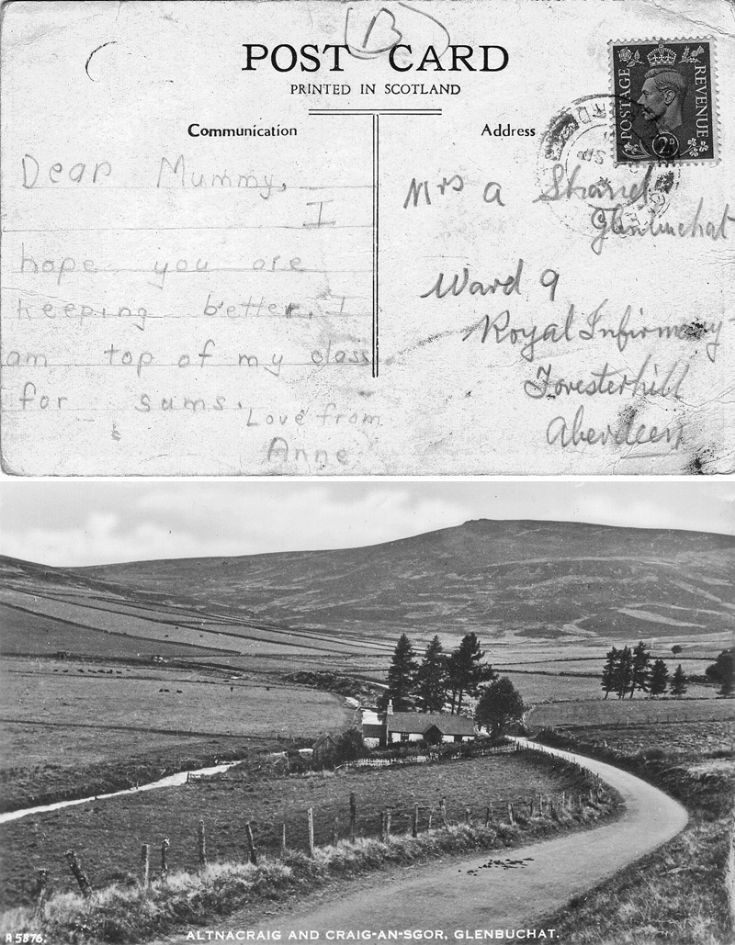 B
POST CARD
PRINTED IN SCOTLAND
POSTAGE REVENUE
2D
SP
Communication
Address
Dear Mummy,
I
hope you are
keeping better. I
am top of my class
for sums.
Love from
Anne
Mrs A Strand
Glenbuchat
Ward 9
Royal Infirmary
Foresterhill
Aberdeen
A 5876.
ALTNACRAIG AND CRAIG-AN-SGOR, GLENBUCHAT.